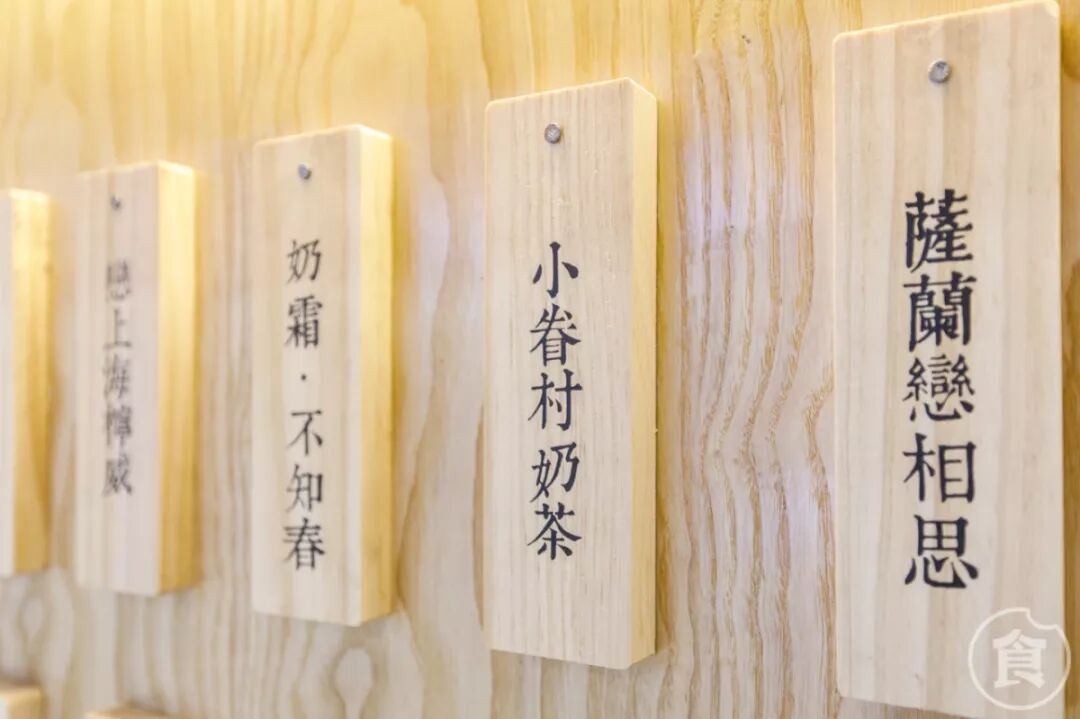 薩蘭戀相思
小眷村奶茶
奶霜·不知春
上海檸威
食